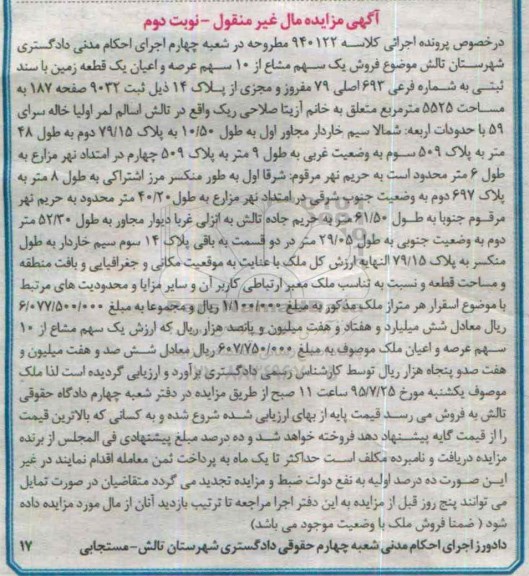 آگهی مزایده مال غیر منقول - نوبت دوم
درخصوص پرونده اجرائی کلاسه ۹۴۰۱۲۲ مطروحه در شعبه چهارم اجرای احکام مدنی دادگستری
شهرستان تالش موضوع فروش یک سهم مشاع از ۱۰ سهم عرصه و اعیان یک قطعه زمین با سند
ثبتی به شماره فرعی ۶۹۳ اصلی ۷۹ مفروز و مجزی از پلاک ۱۴ ذیل ثبت ۹۰۳۲ صفحه ۱۸۷ به
مساحت ۵۵۲۵ مترمربع متعلق به خانم آزیتا صلاحی ریک واقع در تالش اسالم لمر اولیا خاله سرای
۵۹ با حدودات اربعه: شمالا سیم خاردار مجاور اول به طول ۱۰/۵۰ به پلاک ۷۹/۱۵ دوم به طول ۴۸
متر به پلاک ۵۰۹ سوم به وضعیت غربی به طول ۹ متر به پلاک ۵۰۹ چهارم در امتداد نهر مزارع به
طول ۶ متر محدود است به حریم نهر مرقوم: شرقا اول به طور منکسر مرز اشتراکی به طول ۸ متر به
پلاک ۶۹۷ دوم به وضعیت جنوب شرقی در امتداد نهر مزارع به طول ۴۰/۲۰ متر محدود به حریم نهر
مرقوم جنوبا به طول ۶۱/۵۰ متر به حریم جاده تالش به انزلی غربا دیوار مجاور به طول ۵۲/۳۰ متر
دوم به وضعیت جنوبی به طول ۲۹/۰۵ متر در دو قسمت به باقی پلاک ۱۴ سوم سیم خاردار به طول
منکسر به پلاک ۷۹/۱۵ النهایه ارزش کل ملک با عنایت به موقعیت مکانی و جغرافیایی و بافت منطقه
و مساحت قطعه و نسبت به تناسب ملک معبر ارتباطی کاربر آن و سایر مزایا و محدودیت های مرتبط
با موضوع اسقرار هر متراز ملک مذکور به مبلغ ۱/۱۰۰/۰۰۰ ریال و مجموعا به مبلغ ۶/۰۷۷/۵۰۰/۰۰۰
ریال معادل شش میلیارد و هفتاد و هفت میلیون و پانصد هزار ریال که ارزش یک سهم مشاع از ۱۰
سهم عرصه و اعیان ملک موصوف به مبلغ ۶۰۷/۷۵۰/۰۰۰ ریال معادل شش صد و هفت میلیون و
هفت صدو پنجاه هزار ریال توسط کارشناس رسمی دادگستری برآورد و ارزیابی گردیده است لذا ملک
موصوف یکشنبه مورخ ۹۵/۷/۲۵ ساعت ۱۱ صبح از طریق مزایده در دفتر شعبه چهارم دادگاه حقوقی
تالش به فروش می رسد قیمت پایه از بهای ارزیابی شده شروع شده و به کسانی که بالاترین قیمت
را از قیمت گایه پیشنهاد دهد فروخته خواهد شد و ده درصد مبلغ پیشنهادی فی المجلس از برنده
مزایده دریافت و نامبرده مکلف است حداکثر تا یک ماه به پرداخت ثمن معامله اقدام نمایند در غیر
این صورت ده درصد اولیه به نفع دولت ضبط و مزایده تجدید می گردد متقاضیان در صورت تمایل
می توانند پنج روز قبل از مزایده به این دفتر اجرا مراجعه تا ترتیب بازدید آنان از مال مورد مزایده داده
شود ( ضمنا فروش ملک با وضعیت موجود می باشد)
دادورز اجرای احکام مدنی شعبه چهارم حقوقی دادگستری شهرستان تالش-مستجابی ۱۷